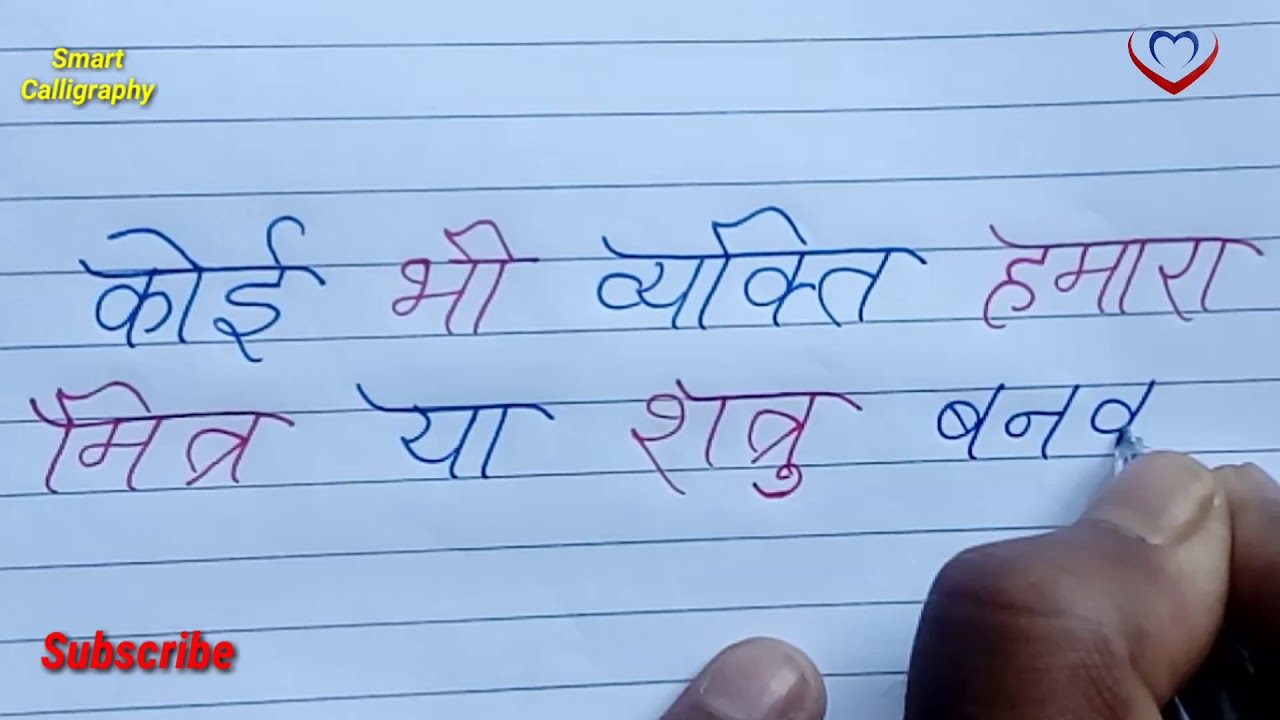 Smart
Calligraphy
कोई भी व्यक्ति हमारा
मित्र या शत्रु बनव
Subscribe